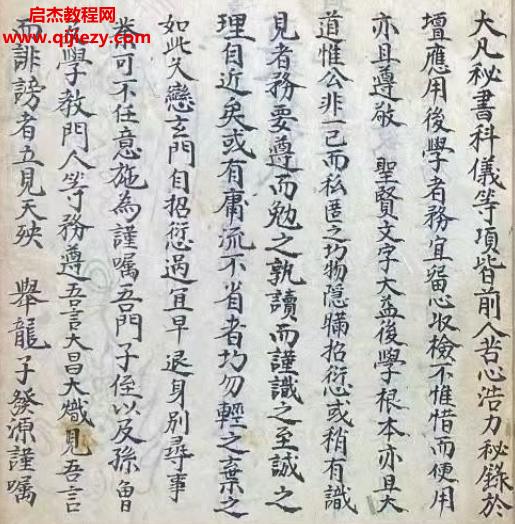 启杰教程网
www.qijiezy.com
大凡秘書科儀等項皆前人苦心浩力秘錄於
壇應用後學者務宜留心收檢不惟惜而便用
亦且遵敬 聖賢文字大益後學根本亦且大
道惟公非一己而私匿之切物隱瞞招愆或稍有識
見者務要遵而勉之孰讀而謹識之至誠之
理自近矣或有庸流不省者切勿輕之棄之
如此欠戀玄門自招愆過宜早退身別尋事
業可不任意施為謹嘱吾門子侄以及孫曾
後學教門人等務遵吾言大昌大熾見吾言
而誹謗者立見天殃 舉龍子發源謹嘱